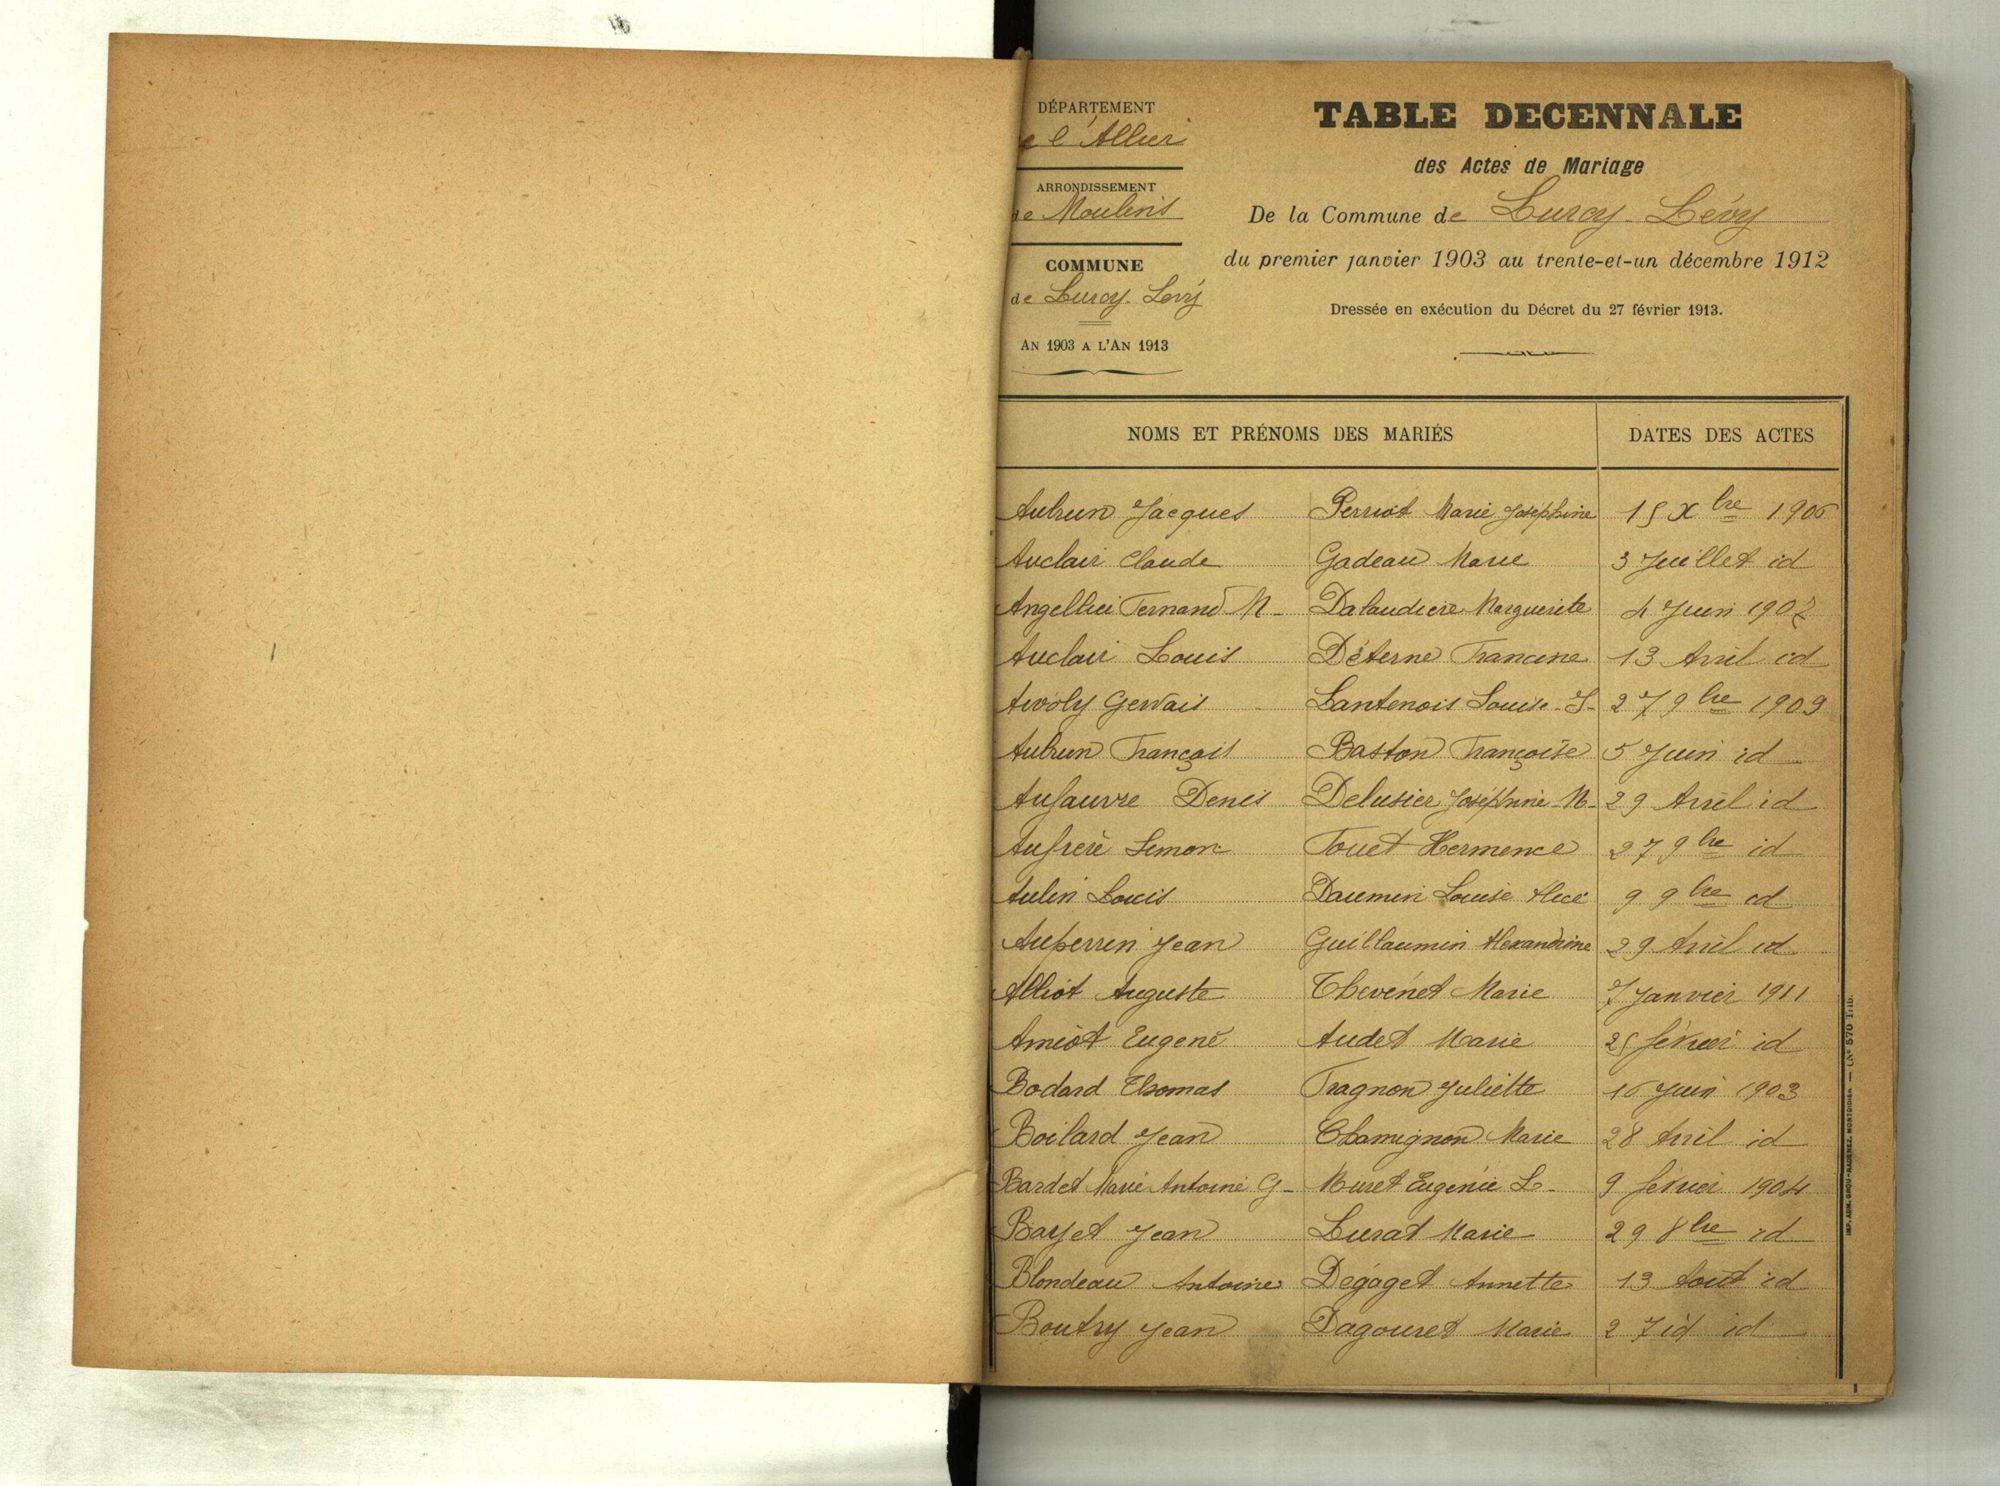 DÉPARTEMENT
de l'Allier
ARRONDISSEMENT
de Moulins
COMMUNE
de Lurcy-Lévy
AN 1903 A L'AN 1913
TABLE DECENNALE
des Actes de Mariage
De la Commune de Lurcy-Lévy
du premier janvier 1903 au trente-et-un décembre 1912
Dressée en exécution du Décret du 27 février 1913.
NOMS ET PRÉNOMS DES MARIÉS DATES DES ACTES
Aubrun Jacques Perriot Marie Joséphine 15 Xbre 1906
Auclair Claude Gadeau Marie 3 Juillet id
Fernand M- Marguerite 4 Juin 1907
Auclair Louis Déterne Francine 13 Avril id
Gervais Lantenois Louise-J- 27 9bre 1909
Aubrun François Baston Françoise 5 Juin id
Aufauvre Denis Delusier Joséphine-M- 29 Avril id
Aufrère Simon Touet Hermence 27 9bre id
Aulin Louis Daumin Louise Alice 9 9bre id
Auperrin Jean Guillaumin Alexandrine 29 Avril id
Alliot Auguste Thevenet Marie 7 Janvier 1911
Amiot Eugène Audet Marie 25 février id
Bodard Thomas Fragnon Juliette 16 Juin 1903
Boilard Jean Chamignon Marie 28 Avril id
Bardet Marie Antoine G- Muret Eugénie L- 9 février 1904
Bayet Jean Lurat Marie 29 8bre id
Blondeau Antoine Dégaget Annette 13 Août id
Boutry Jean Dagouret Marie 27 id id
1